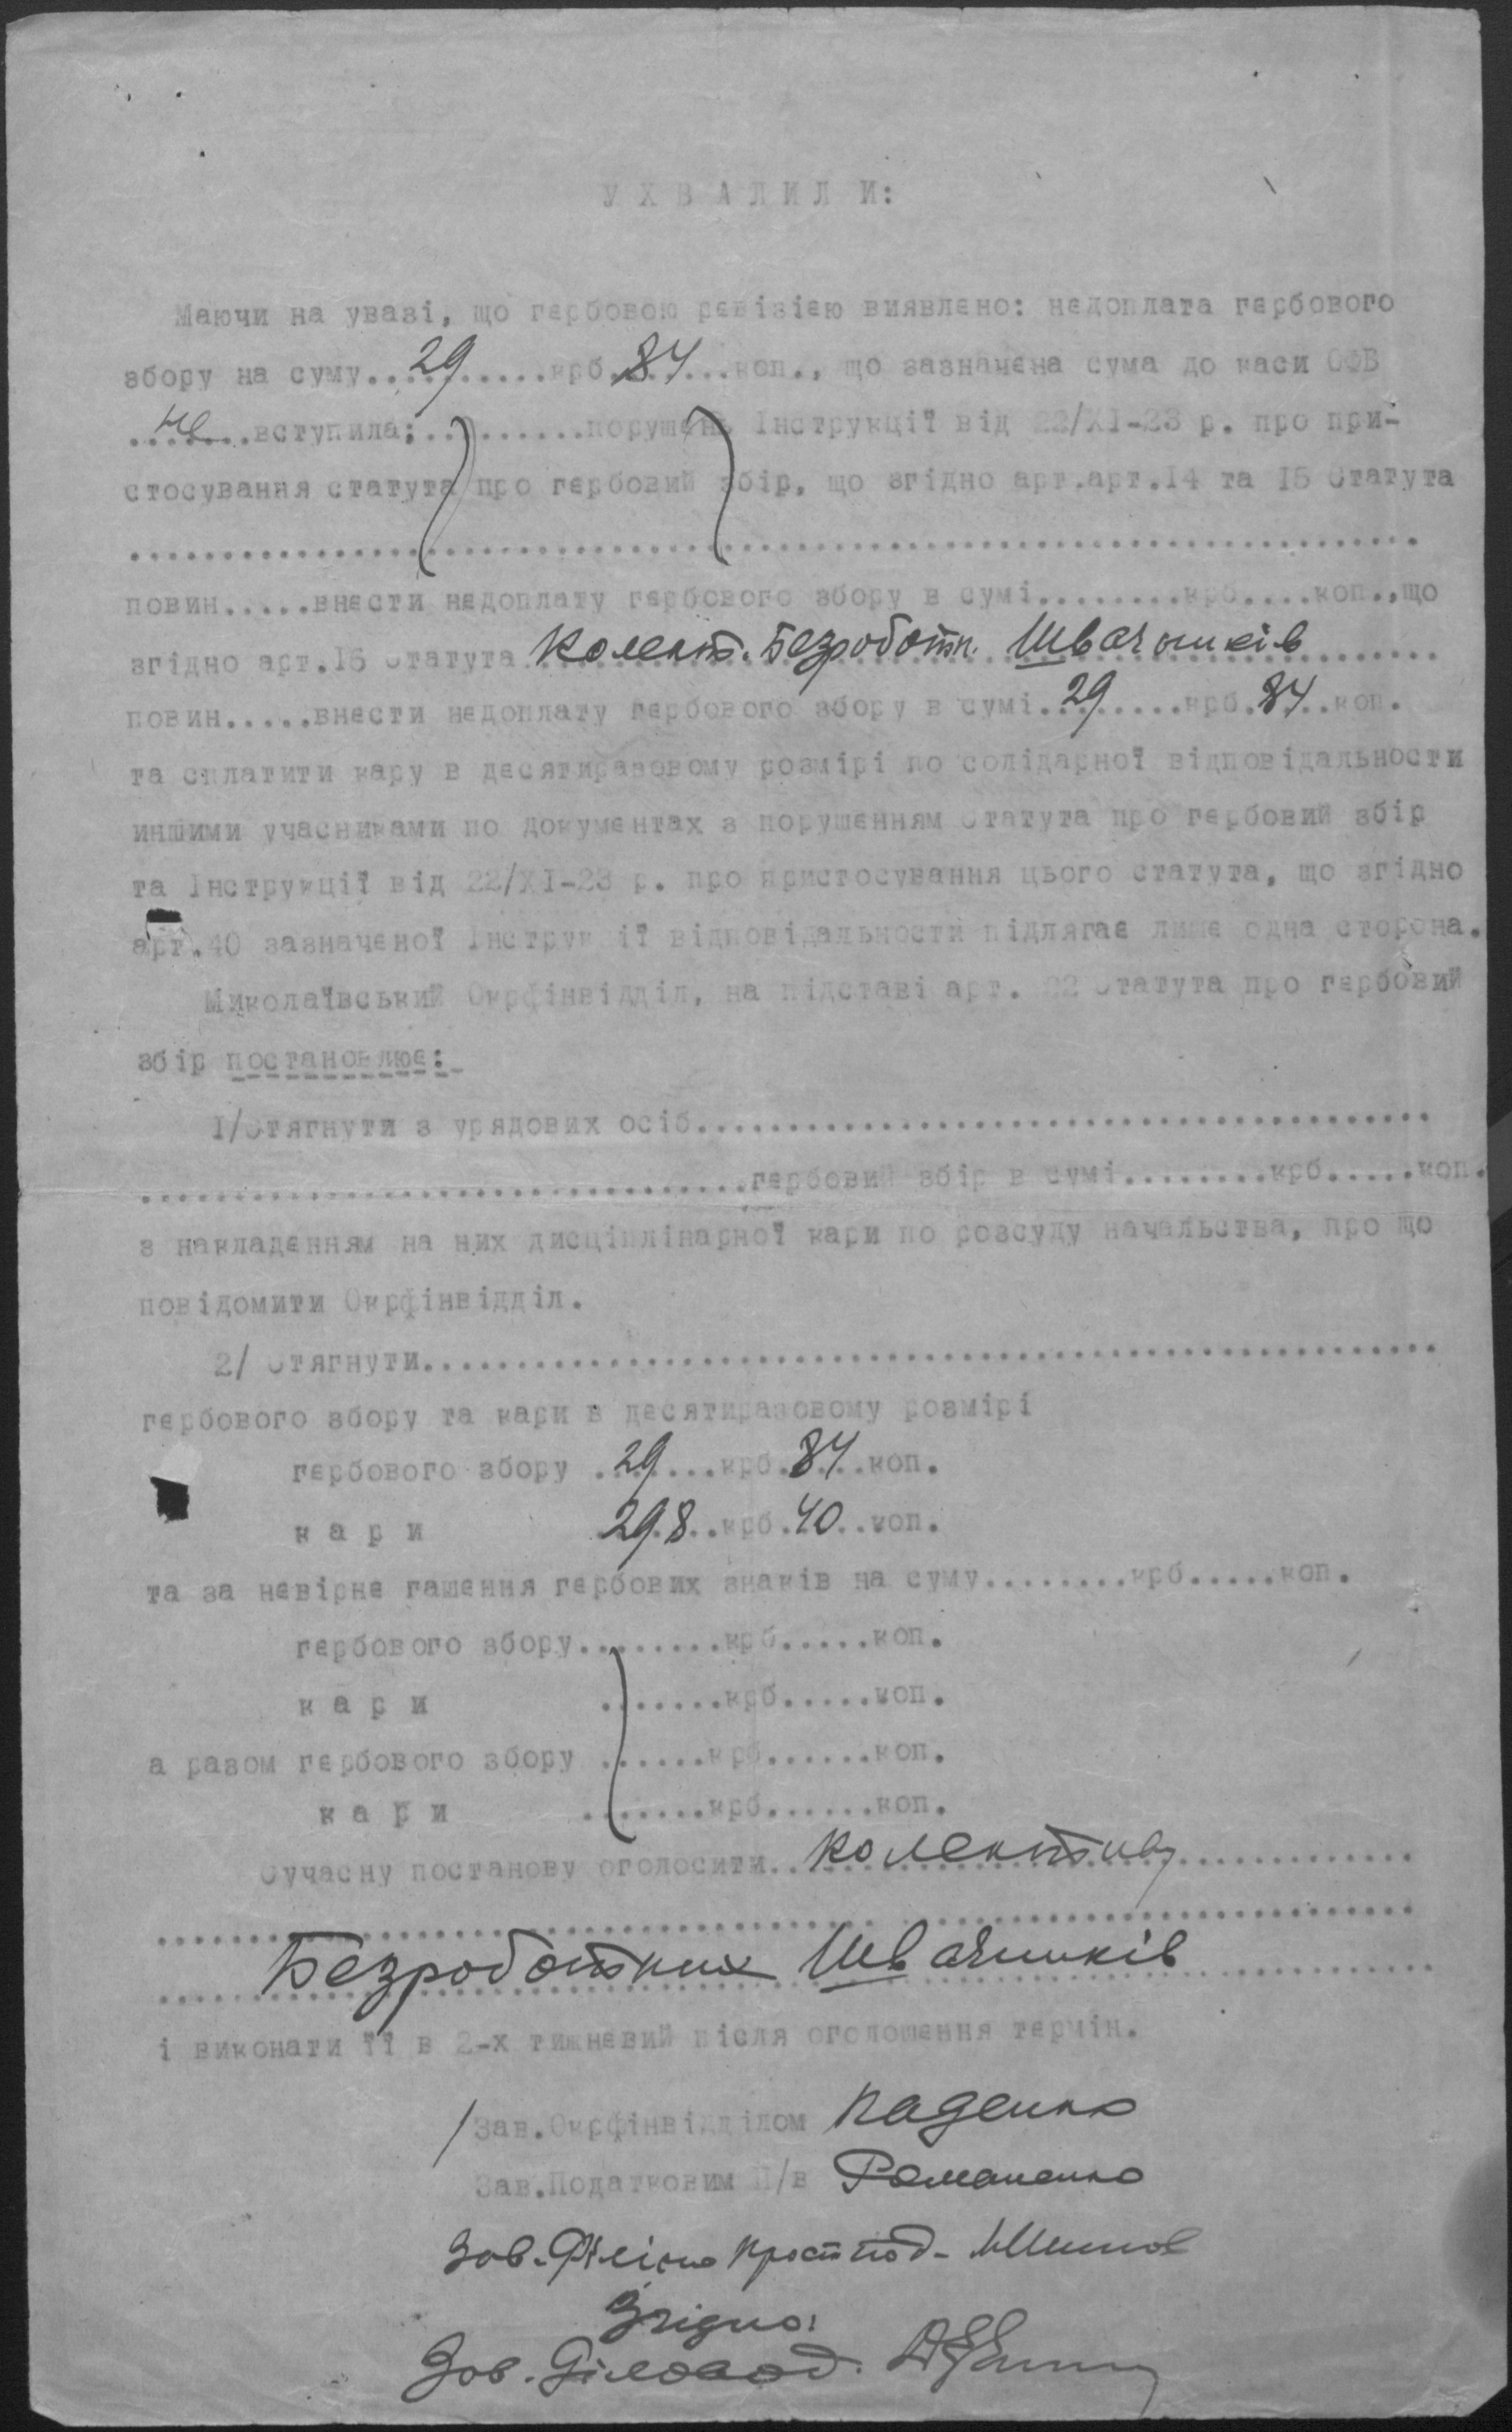 У Х В А Л И Л И:
Маючи на увазі, що гербовою ревізією виявлено: недоплата гербового
збору на суму..29........крб.84...коп., що зазначена сума до каси ОФВ
..не...вступила;..........порушень Інструкції від 22/XI-23 р. про при-
стосування статута про гербовий збір, що згідно арт.арт.14 та 15 Статута
......................................................................
повин.....внести недоплату гербового збору в сумі........крб....коп.,що
згідно арт.15 Статута Колект. Безроботн. Швачників.......
повин.....внести недоплату гербового збору в сумі.29.....крб.84..коп.
та сплатити кару в десятиразовому розмірі по солідарної відповідальности
иншими учасниками по документах з порушенням Статута про гербовий збір
та Інструкції від 22/XI-23 р. про пристосування цього статута, що згідно
арт.40 зазначеної Інструк ії відповідальности підлягає лише одна сторона.
Миколаївський Окрфінвідділ, на підставі арт. 22 Статута про гербовий
збір постановлює:
1/Стягнути з урядових осіб........................................
.................................гербовий збір в сумі........крб.....коп.
з накладенням на них дисціплінарної кари по розсуду начальства, про що
повідомити Окрфінвідділ.
2/ Стягнути.......................................................
гербового збору та кари в десятиразовому розмірі
гербового збору .29....крб.84...коп.
к а р и 298..крб.40..коп.
та за невірне гашення гербових знаків на суму........крб.....коп.
гербового збору........крб.....коп.
к а р и .......крб.....коп.
а разом гербового збору ......крб......коп.
к а р и .......крб......коп.
Сучасну постанову оголосити..Колективу.............
......................................................................
Безроботних Швачників............
і виконати її в 2-х тижневий після оголошення термін.
/Зав.Окрфінвідділом Паденко
Зав.Податковим П/в Романенко
Зав.
Згідно:
Зав. Діловод.